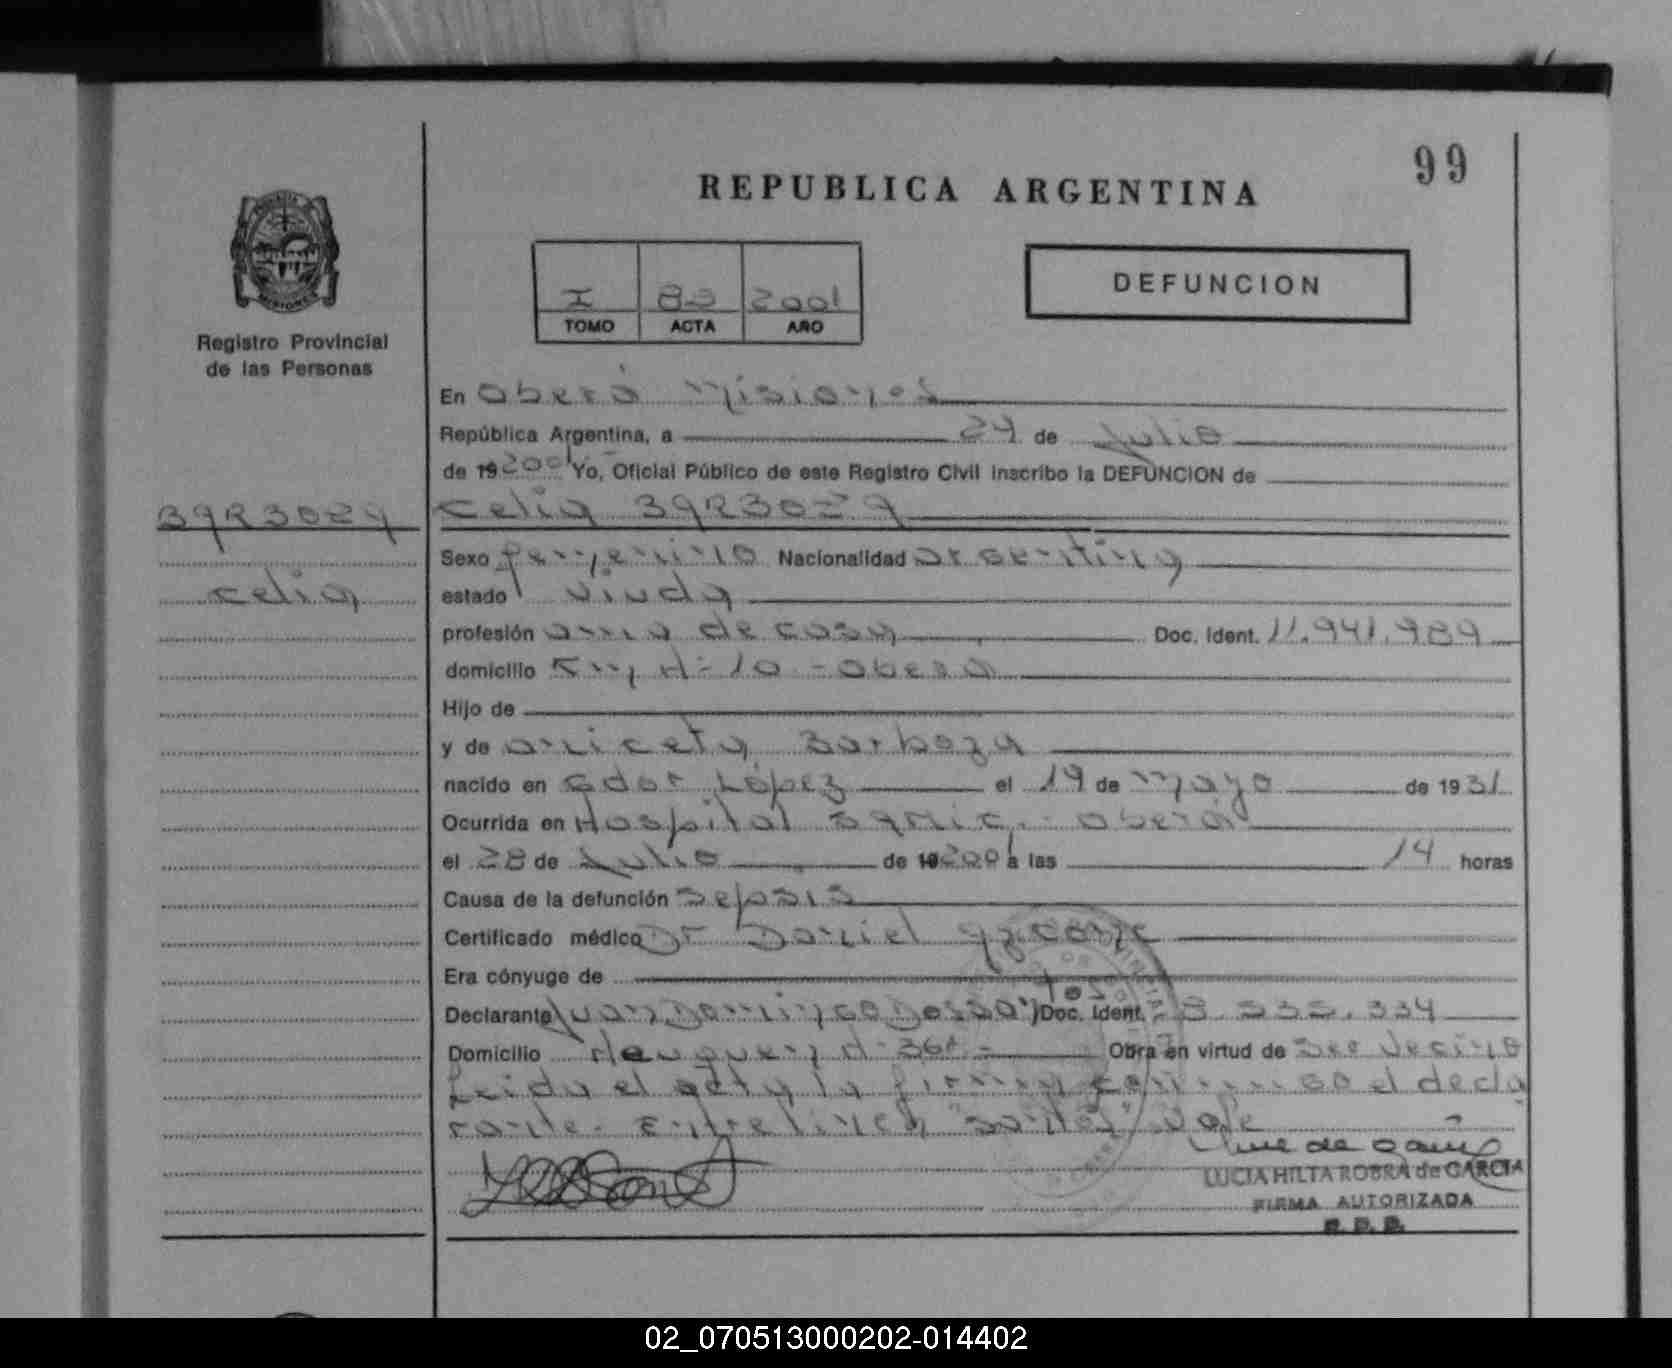 99
REPUBLICA ARGENTINA
MISIONES
Registro Provincial
de las Personas
I 2001
TOMO ACTA AÑO
DEFUNCION
En Oberá Misiones
República Argentina, a 24 de Julio
de 19 2001 Yo, Oficial Público de este Registro Civil inscribo la DEFUNCION de
Celia
Celia
Sexo femenino Nacionalidad argentina
estado viuda
profesión ama de casa Doc. Ident. 11.941.989
domicilio Km 10 - Oberá
Hijo de
y de aniceta Barboza
nacido en Cdor López el 19 de mayo de 1931
Ocurrida en Hospital Samic - Oberá
el de Julio de 19 2001 a las 14 horas
Causa de la defunción sepsis
Certificado médico Dr Daniel
Era cónyuge de
Declarante Juan Domingo Doc. Ident. 334
Domicilio Obra en virtud de ser vecino
Leida el acta la firma conmigo el decla
rante. Entrelinea vale
LUCIA HILTA ROBRA de GARCIA
FIRMA AUTORIZADA
02_070513000202-014402